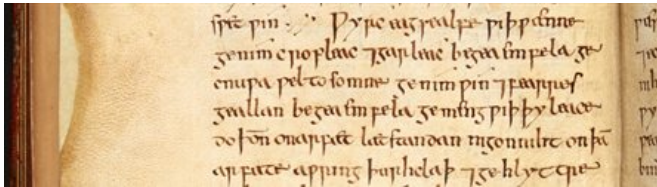 Ƿyrc eagsealfe ƿiþ ƿænne
genim cropleac ⁊ garleac begea emfela ge
cnuƿa ƿel tosomne genim ƿin ⁊ fearres
geallan begea emfela gemeng ƿiþ þy leace
do þoñ on arfæt læt standan nigon niht on þā
arfæte aƿring þurh claþ ⁊ gehlyttre